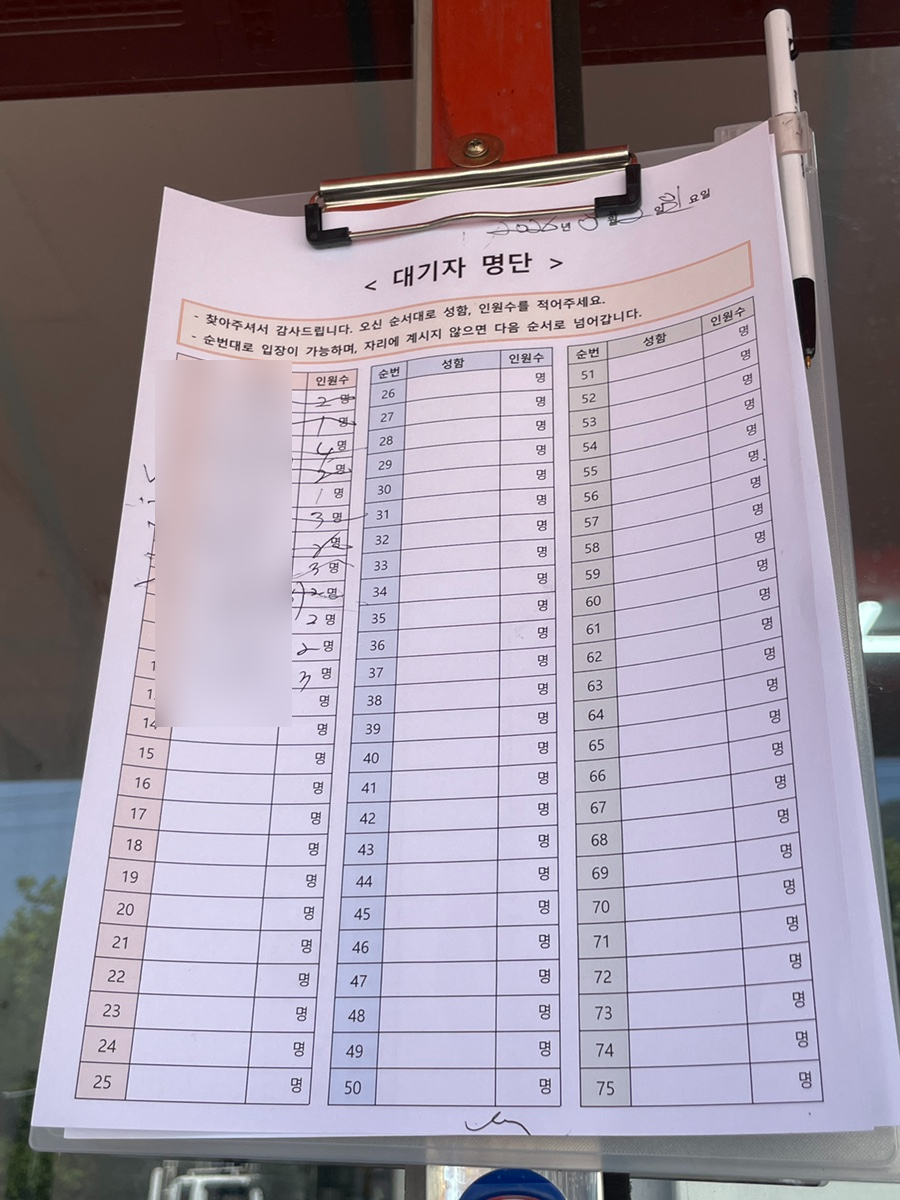 2026년 월 일 요일
< 대기자 명단 >
- 찾아주셔서 감사드립니다. 오신 순서대로 성함, 인원수를 적어주세요.
- 순번대로 입장이 가능하며, 자리에 계시지 않으면 다음 순서로 넘어갑니다.
인원수 순번 성함 인원수 순번 성함 인원수
2명 26 명 51 명
1명 27 명 52 명
4명 28 명 53 명
2명 29 명 54 명
1명 30 명 55 명
3명 31 명 56 명
2명 32 명 57 명
3명 33 명 58 명
2명 34 명 59 명
2명 35 명 60 명
2명 36 명 61 명
3명 37 명 62 명
명 38 명 63 명
14 명 39 명 64 명
15 명 40 명 65 명
16 명 41 명 66 명
17 명 42 명 67 명
18 명 43 명 68 명
19 명 44 명 69 명
20 명 45 명 70 명
21 명 46 명 71 명
22 명 47 명 72 명
23 명 48 명 73 명
24 명 49 명 74 명
25 명 50 명 75 명